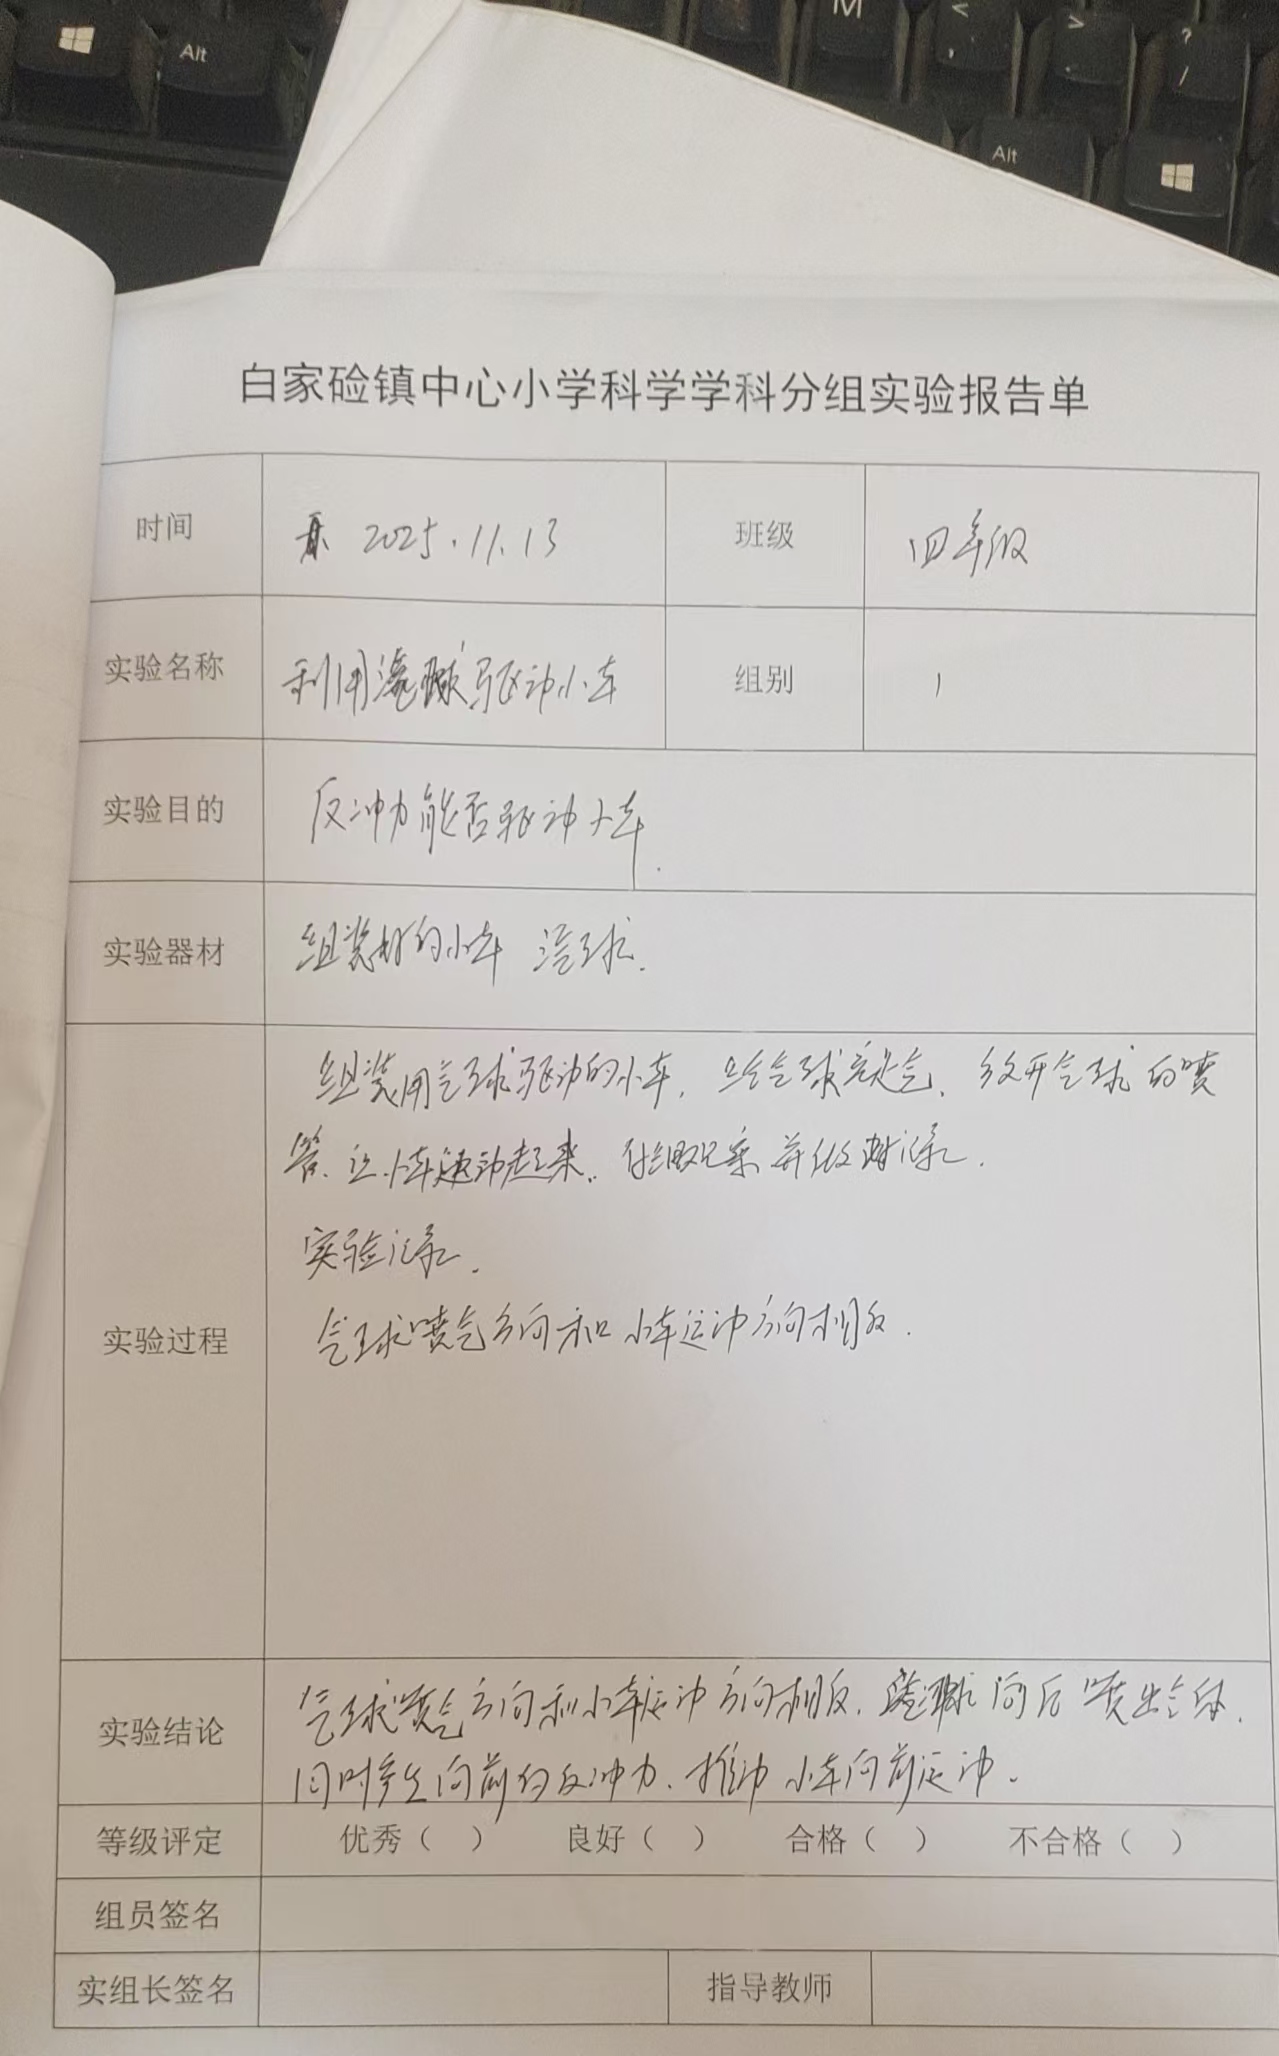 Alt
M
<
,
>
.
?
/
Alt
白家硷镇中心小学科学学科分组实验报告单
时间 2025.11.13 班级 四年级
实验名称 利用气球驱动小车 组别 1
实验目的 反冲力能否驱动小车.
实验器材 组装好的小车 汽球.
组装用气球驱动的小车, 给气球充气、放开气球的喷
管、让小车运动起来. 仔细观察并做好记录.
实验记录.
实验过程 气球喷气方向和小车运动方向相反.
气球喷气方向和小车运动方向相反. 气球向后喷出气体.
实验结论
同时产生向前的反冲力、推动小车向前运动.
等级评定 优秀（ ） 良好（ ） 合格（ ） 不合格（ ）
组员签名
实组长签名 指导教师